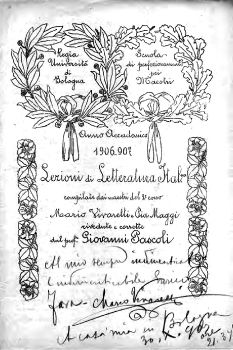 Regia
Università
di
Bologna
Scuola
di perfezionamento
pei
Maestri
Anno Accademico
1906.907.
Lezioni di Letteratura Ital.
compilate dai maestri del 2° corso
Mario Vivarelli e Pia Maggi
rivedute e corrette
dal prof. Giovanni Pascoli
Al mio sempre
e
Mario Vivarelli
A casa mia in Bologna